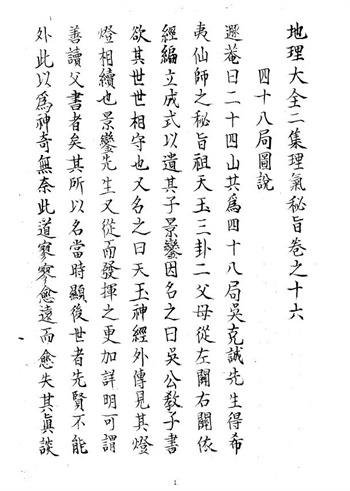 地理大全二集理氣秘旨卷之十六
四十八局圖說
遯菴曰二十四山共為四十八局吳克誠先生得希
夷仙師之秘旨祖天玉三卦二父母從左關右關依
經編立成式以遺其子景鸞因名之曰吳公教子書
欲其世世相守也又名之曰天玉神經外傳見其燈
燈相續也景鸞先生又從而發揮之更加詳明可謂
善讀父書者矣其所以名當時顯後世者先賢不能
外此以爲神奇無奈此道寥寥愈遠而愈失其真談
1